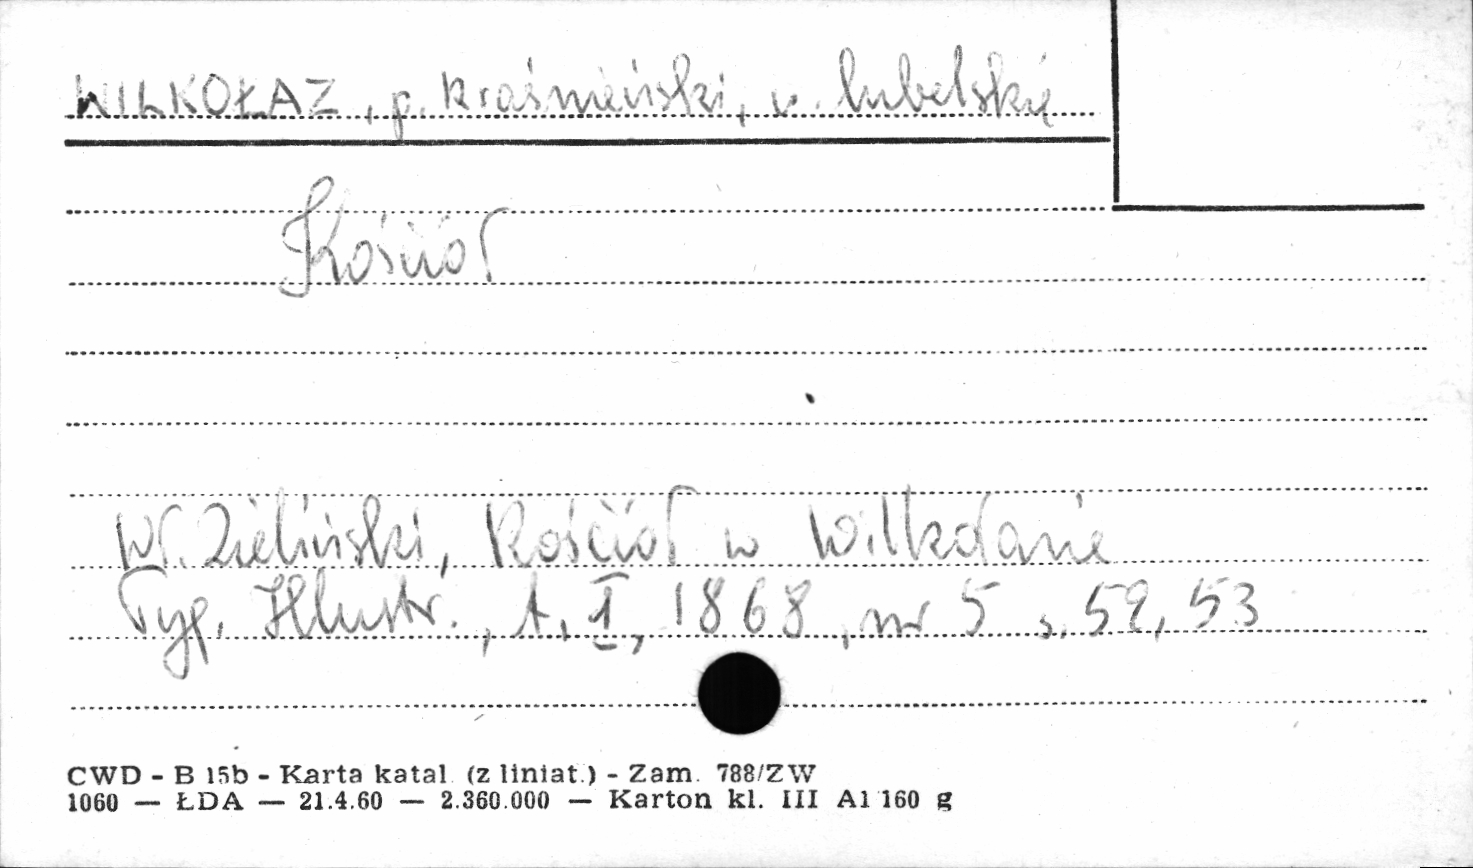 WILKOŁAZ, p. kraśnieński, w. lubelskie
Kościół
Wł. Zieliński, Kościół w Wilkołazie
Tyg. Illustr., t. I, 1868, nr 5 s. 52, 53
CWD - B 15b - Karta katal. (z liniat.) - Zam. 788/ZW
1060 — ŁDA — 21.4.60 — 2.360.000 — Karton kl. III A1 160 g